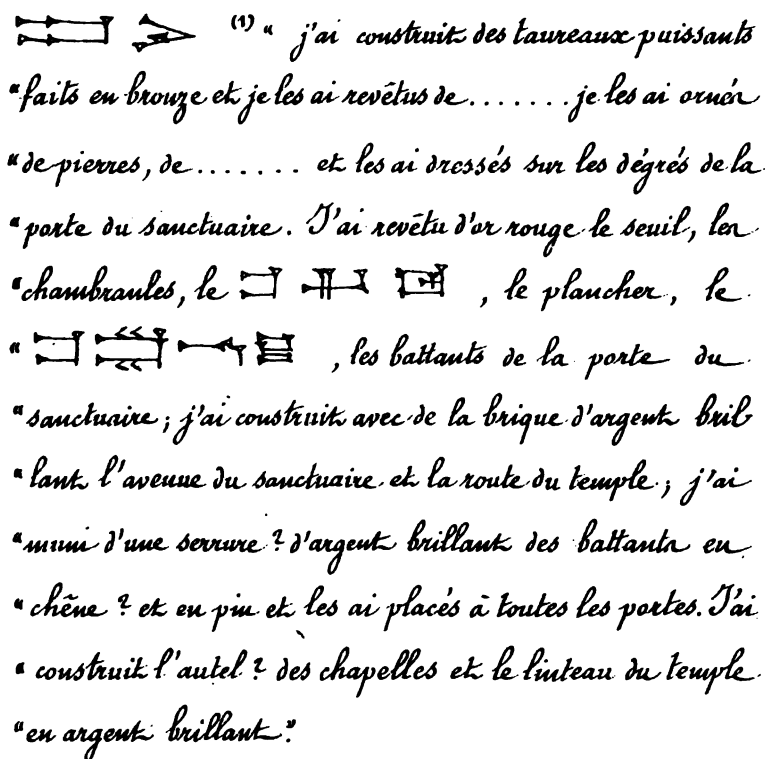 (1) " j'ai construit des taureaux puissants
"faits en bronze et je les ai revêtus de ........ je les ai ornés
"de pierres, de ....... et les ai dressés sur les dégrés de la
"porte du sanctuaire. J'ai revêtu d'or rouge le seuil, les
"chambranles, le , le plancher, le
" , les battants de la porte du
"sanctuaire ; j'ai construit avec de la brique d'argent bril
"lant l'avenue du sanctuaire et la route du temple ; j'ai
"muni d'une serrure ? d'argent brillant des battants en
"chêne ? et en pin et les ai placés à toutes les portes. J'ai
"construit l'autel ? des chapelles et le linteau du temple
"en argent brillant."